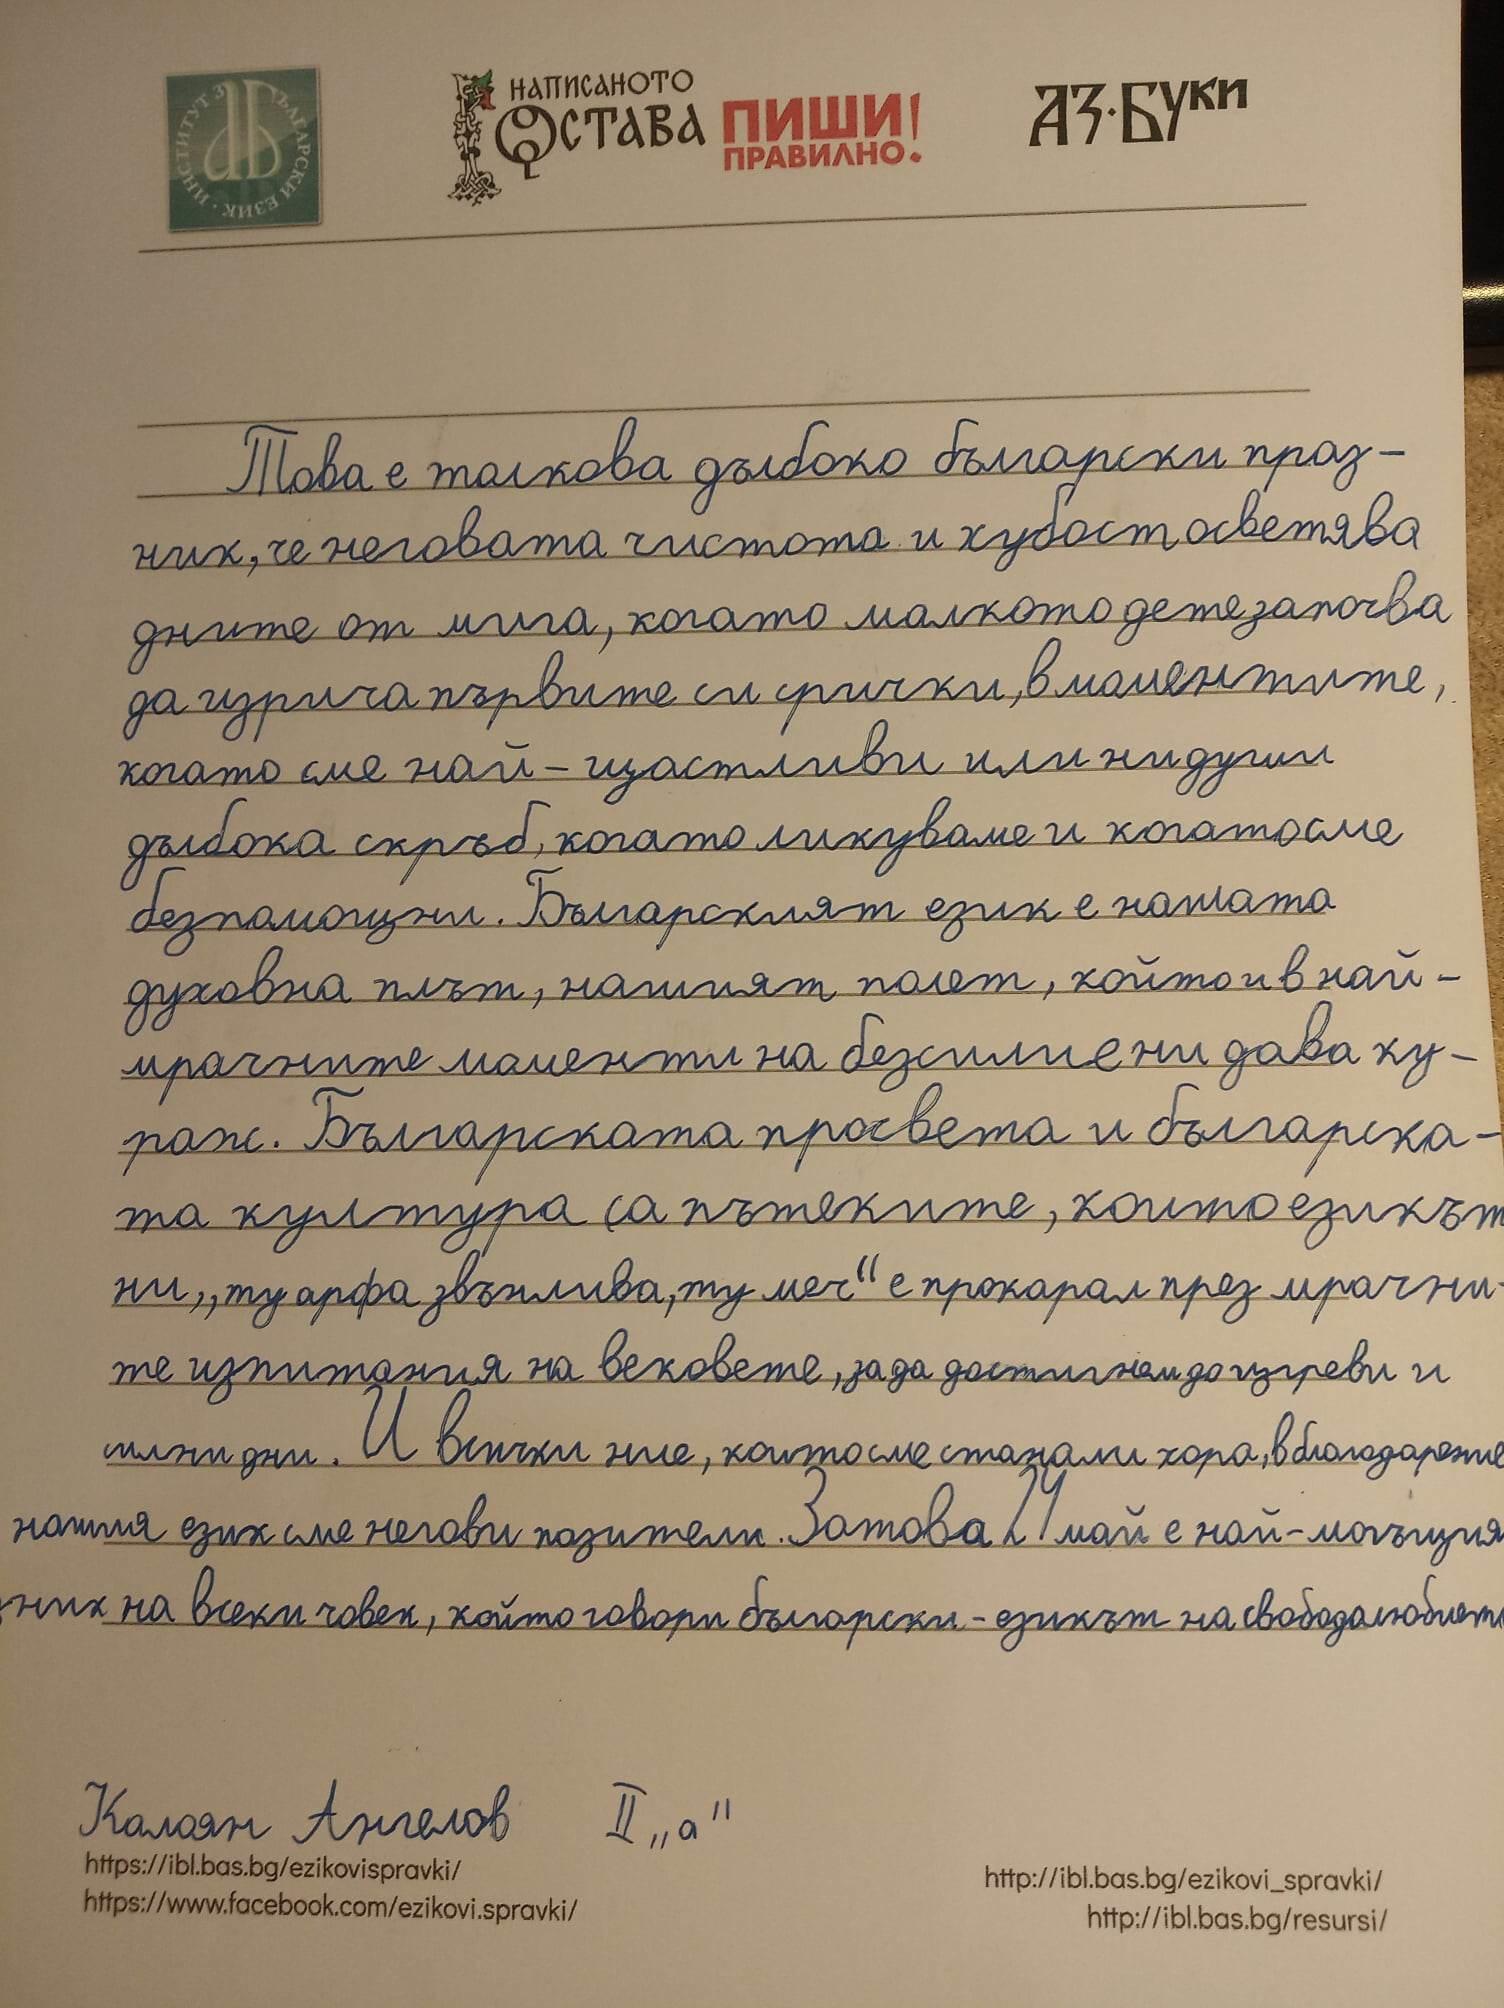 ИНСТИТУТ ЗА БЪЛГАРСКИ ЕЗИК
НАПИСАНОТО
ОСТАВА
ПИШИ
ПРАВИЛНО!
АЗ·БУКИ
Това е толкова дълбоко български праз-
ник, че неговата чистота и хубост осветява
дните от мига, когато малкото дете започва
да изрича първите си срички, в моментите,
когато сме най-щастливи или ни души
дълбока скръб, когато ликуваме и когато сме
безпомощни. Българският език е нашата
духовна плът, нашият полет, който и в най-
мрачните моменти на безсилие ни дава ку-
раж. Българската просвета и българска-
та култура са пътеките, които езикът
ни „ту арфа звънлива, ту меч“ е прокарал през мрачни-
те изпитания на вековете, за да достигнем до изгреви и
силни дни. И всички ние, които сме станали хора, благодарение
нашия език сме негови носители. Затова 24 май е най-могъщия
зник на всеки човек, който говори български - езикът на
Калоян Ангелов II „а“
https://ibl.bas.bg/ezikovispravki/
https://www.facebook.com/ezikovi.spravki/
http://ibl.bas.bg/ezikovi_spravki/
http://ibl.bas.bg/resursi/